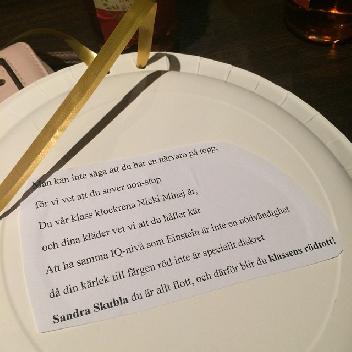 Man kan inte säga att du har en närvaro på topp,
för vi vet att du sover non-stop
Du vår klass klockrena Nicki Minaj är,
och dina kläder vet vi att du håller kär
Att ha samma IQ-nivå som Einstein är inte en nödvändighet
då din kärlek till färgen röd inte är speciellt diskret
Sandra Skubla du är allt flott, och därför blir du klassens rödtott!